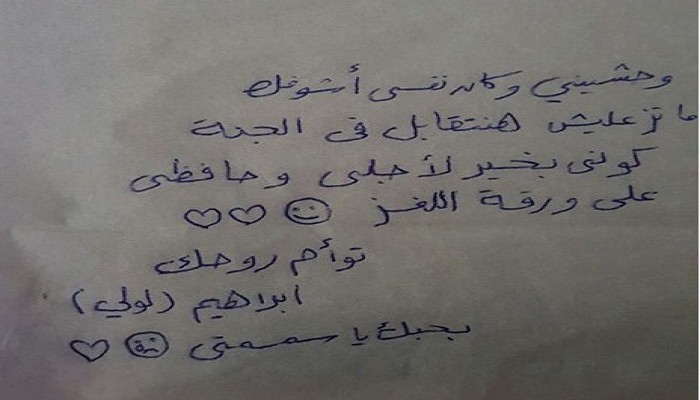 وحشتيني وكان نفسى أشوفك
ما تزعليش هنتقابل فى الجنة
كونى بخير لأجلى وحافظى
على ورقة اللغز ☺ ♡♡
توأم روحك
ابراهيم (لولي)
بحبك يا سمسمتى ☺ ♡